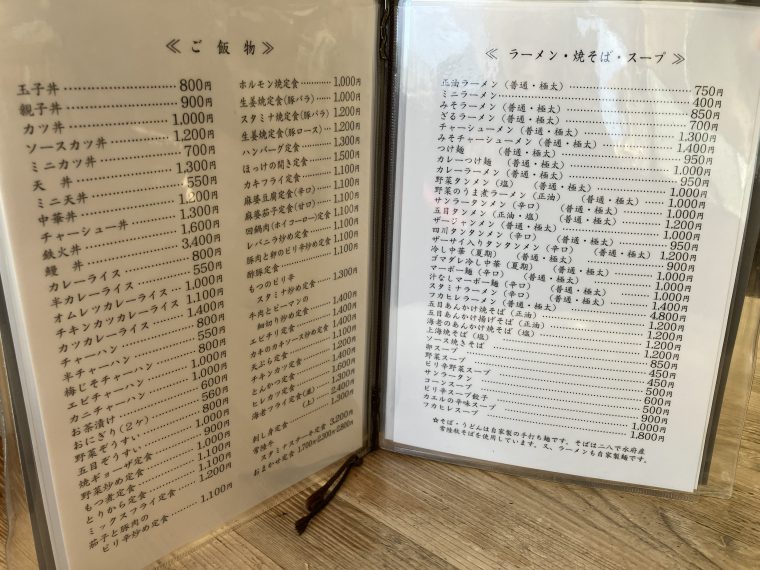 ≪ ご 飯 物 ≫
玉子丼 800円
親子丼 900円
カツ丼 1,000円
ソースカツ丼 1,200円
ミニカツ丼 700円
天 丼 1,300円
ミニ天丼 550円
中華丼 1,200円
チャーシュー丼 1,300円
鉄火丼 1,600円
鰻 丼 3,400円
カレーライス 800円
半カレーライス 550円
オムレツカレーライス 1,000円
チキンカツカレーライス 1,100円
カツカレーライス 1,400円
チャーハン 800円
半チャーハン 550円
梅じそチャーハン
エビチャーハン
カニチャーハン
お茶漬け
おにぎり（2ヶ）
野菜ぞうすい
五目ぞうすい
焼ギョーザ定食
野菜炒め定食
もつ煮定食
とりから定食
ミックスフライ定食
茄子と豚肉の
ピリ辛炒め定食 1,100円
ホルモン焼定食 1,000円
生姜焼定食(豚バラ) 1,100円
スタミナ焼定食(豚バラ) 1,200円
生姜焼定食(豚ロース) 1,200円
ハンバーグ定食 1,100円
ほっけの開き定食 1,500円
カキフライ定食 1,100円
麻婆豆腐定食(辛口) 1,100円
麻婆茄子定食(甘口) 1,100円
回鍋肉(ホイコーロー)定食 1,100円
レバニラ炒め定食 1,100円
豚肉と卵のピリ辛炒め定食 1,100円
酢豚定食
もつのピリ辛
スタミナ炒め定食 1,300円
牛肉とピーマンの
細切り炒め定食 1,400円
エビチリ定食 1,400円
カキのカキソース炒め定食
天ぷら定食
チキンカツ定食
とんかつ定食
ヒレカツ定食
海老フライ定食(並)
(上)
刺し身定食
常陸牛
スタミナステーキ定食 3,200円
おまかせ定食 1,700円•2,300円•2,800円
≪ ラーメン・焼そば・スープ ≫
正油ラーメン（普通・極太） 750円
ミニラーメン 400円
みそラーメン（普通・極太） 850円
ざるラーメン（普通・極太） 700円
チャーシューメン（普通・極太） 1,300円
みそチャーシューメン（普通・極太） 1,400円
つけ麺（普通・極太） 950円
カレーつけ麺（普通・極太） 1,000円
カレーラーメン（普通・極太） 950円
野菜タンメン（塩）（普通・極太）
野菜のうま煮ラーメン（正油）（普通・極太）
サンラータンメン（辛口）（普通・極太）
五目タンメン（正油・塩）（普通・極太）
ザージャンメン（普通・極太）
四川タンタンメン（辛口）（普通・極太）
ザーサイ入りタンタンメン（辛口）（普通・極太）
冷し中華（夏期）（普通・極太）
ゴマダレ冷し中華（夏期）（普通・極太）
汁なしマーボー麺（辛口）（普通・極太）
マーボーメン（辛口）（普通・極太）
スタミナラーメン（普通・極太） 1,400円
フカヒレラーメン（普通・極太） 4,800円
五目あんかけ焼そば（正油） 1,200円
五目あんかけ揚げそば（正油） 1,200円
海老のあんかけ焼そば（塩） 1,200円
上海焼そば（塩） 1,200円
ソース焼きそば 850円
卵スープ 450円
野菜スープ 450円
ピリ辛野菜スープ 500円
サンラータン 600円
コーンスープ 500円
ピリ辛スープ餃子 900円
カエルの辛味スープ 1,000円
フカヒレスープ 1,800円
☆そば・うどんは自家製の手打ち麺です。そばは二八で水府産
常陸秋そばを使用しています。又、ラーメンも自家製麺です。